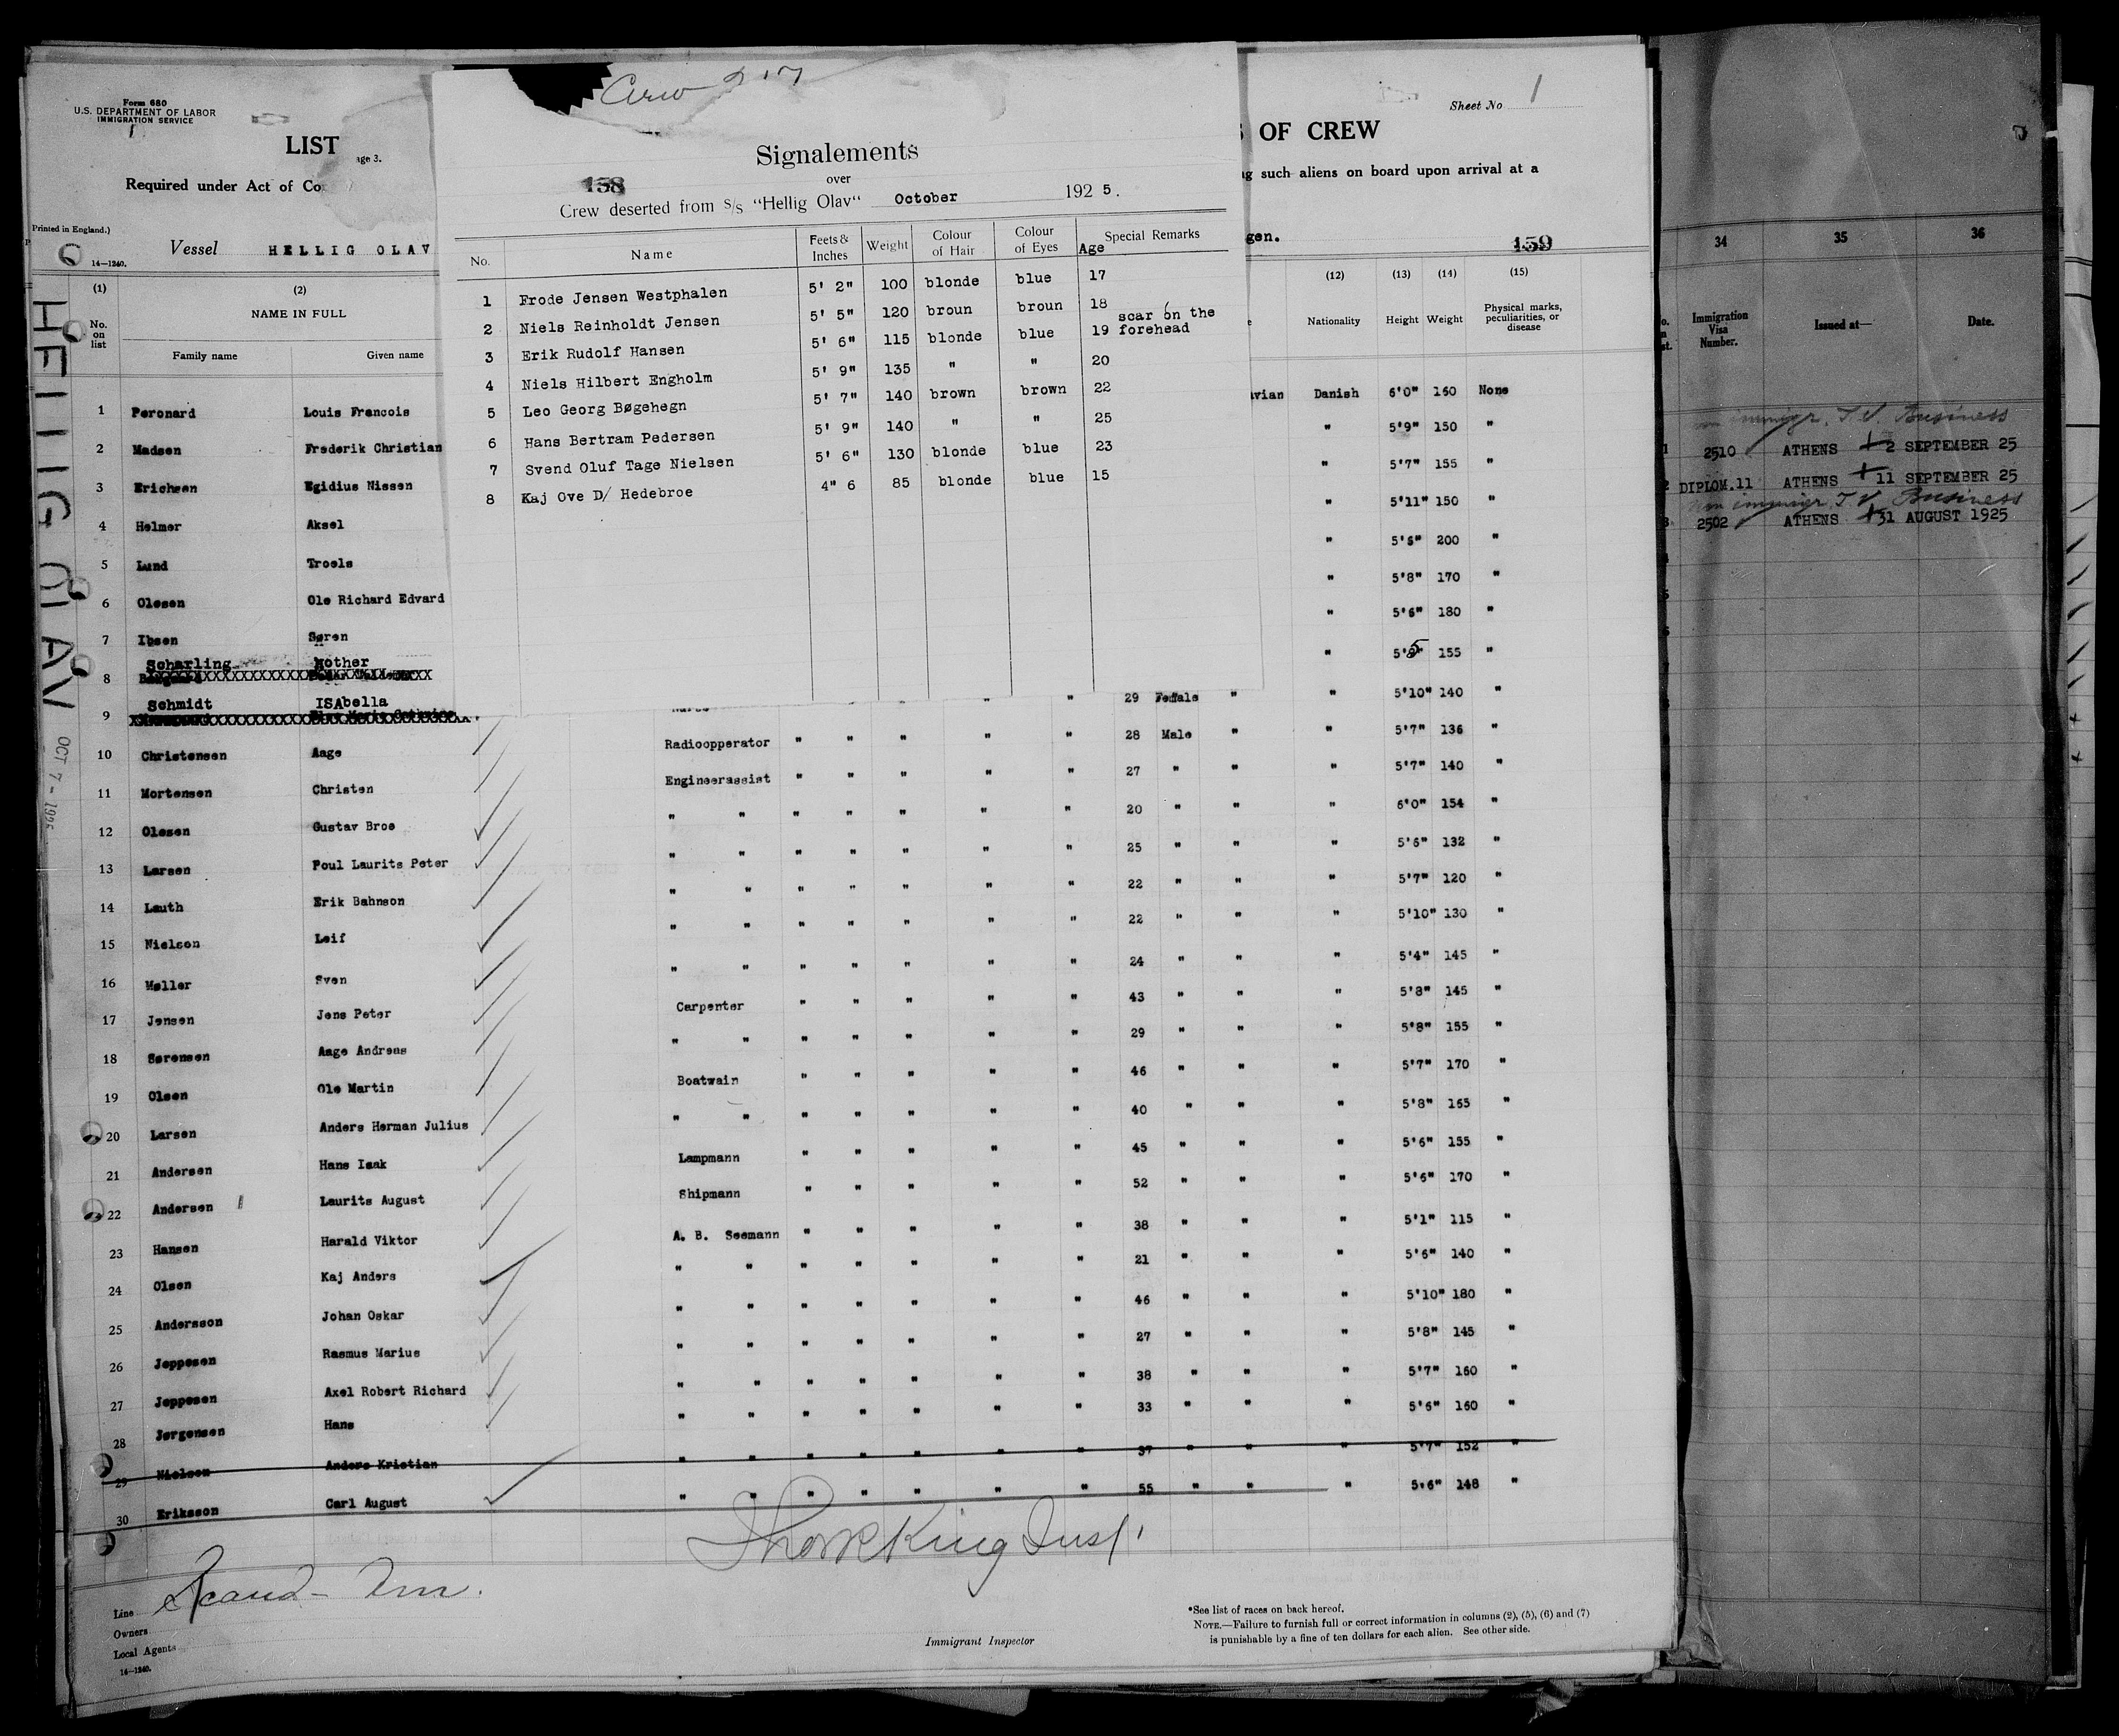 Form 680
U.S. DEPARTMENT OF LABOR
IMMIGRATION SERVICE
LIST
age 3.
Required under Act of Co
Printed in England.)
14—1240.
Vessel HELLIG OLAV
(1) (2)
No. on list
NAME IN FULL
Family name Given name
Crew
Signalements
158
over
Crew deserted from S/S "Hellig Olav" October 1925.
No. Name Feets & Inches Weight Colour of Hair Colour of Eyes Age Special Remarks
1 Frode Jensen Westphalen 5' 2" 100 blonde blue 17
2 Niels Reinholdt Jensen 5' 5" 120 broun broun 18
3 Erik Rudolf Hansen 5' 6" 115 blonde blue 19 scar on the forehead
4 Niels Hilbert Engholm 5' 9" 135 " " 20
5 Leo Georg Bøgehegn 5' 7" 140 brown brown 22
6 Hans Bertram Pedersen 5' 9" 140 " " 25
7 Svend Oluf Tage Nielsen 5' 6" 130 blonde blue 23
8 Kaj Ove D/ Hedebroe 4" 6 85 blonde blue 15
Sheet No 1
OF CREW
such aliens on board upon arrival at a
gen.
159
(12) (13) (14) (15)
Nationality Height Weight Physical marks, peculiarities, or disease
1 Peronard Louis Francois vian Danish 6'0" 160 None
2 Madsen Frederik Christian " 5'9" 150 "
3 Erichsen Egidius Nissen " 5'7" 155 "
4 Helmer Aksel " 5'11" 150 "
5 Lund Troels " 5'6" 200 "
6 Olesen Ole Richard Edvard " 5'8" 170 "
7 Ibsen Søren " 5'6" 180 "
8 Scharling Nother " 5'5" 155 "
9 Schmidt ISAbella " " 29 Female " " 5'10" 140 "
10 Christensen Aage Radioopperator " " " " " 28 Male " " 5'7" 136 "
11 Mortensen Christen Engineerassist " " " " " 27 " " " 5'7" 140 "
12 Olesen Gustav Broe " " " " " " " 20 " " " 6'0" 154 "
13 Larsen Poul Laurits Peter " " " " " " " 25 " " " 5'6" 132 "
14 Lauth Erik Bahnson " " " " " " " 22 " " " 5'7" 120 "
15 Nielsen Leif " " " " " " " 22 " " " 5'10" 130 "
16 Møller Sven " " " " " " " 24 " " " 5'4" 145 "
17 Jensen Jens Peter Carpenter " " " " " 43 " " " 5'8" 145 "
18 Sørensen Aage Andreas " " " " " " " 29 " " " 5'8" 155 "
19 Olsen Ole Martin Boatwain " " " " " 46 " " " 5'7" 170 "
20 Larsen Anders Herman Julius " " " " " " " 40 " " " 5'8" 165 "
21 Andersen Hans Isak Lampmann " " " " " 45 " " " 5'6" 155 "
22 Andersen Laurits August Shipmann " " " " " 52 " " " 5'6" 170 "
23 Hansen Harald Viktor A. B. Seemann " " " " " 38 " " " 5'1" 115 "
24 Olsen Kaj Anders " " " " " " " 21 " " " 5'6" 140 "
25 Andersson Johan Oskar " " " " " " " 46 " " " 5'10" 180 "
26 Jeppesen Rasmus Marius " " " " " " " 27 " " " 5'8" 145 "
27 Jeppesen Axel Robert Richard " " " " " " " 38 " " " 5'7" 160 "
28 Jørgensen Hans " " " " " " " 33 " " " 5'6" 160 "
29 Nielsen Anders Kristian " " " " " " " 37 " " " 5'7" 152 "
30 Eriksson Carl August " " " " " " " 55 " " " 5'6" 148 "
HELLIG OLAV
OCT 7 - 1925
Line Scand- Am.
Owners
Local Agents
14—1240.
Immigrant Inspector
*See list of races on back hereof.
NOTE.—Failure to furnish full or correct information in columns (2), (5), (6) and (7)
is punishable by a fine of ten dollars for each alien. See other side.
34 35 36
Immigration Visa Number. Issued at— Date.
T.V. Business
2510 ATHENS 2 SEPTEMBER 25
DIPLOM.11 ATHENS 11 SEPTEMBER 25
Non immigr. T.V. Business
2502 ATHENS 31 AUGUST 1925